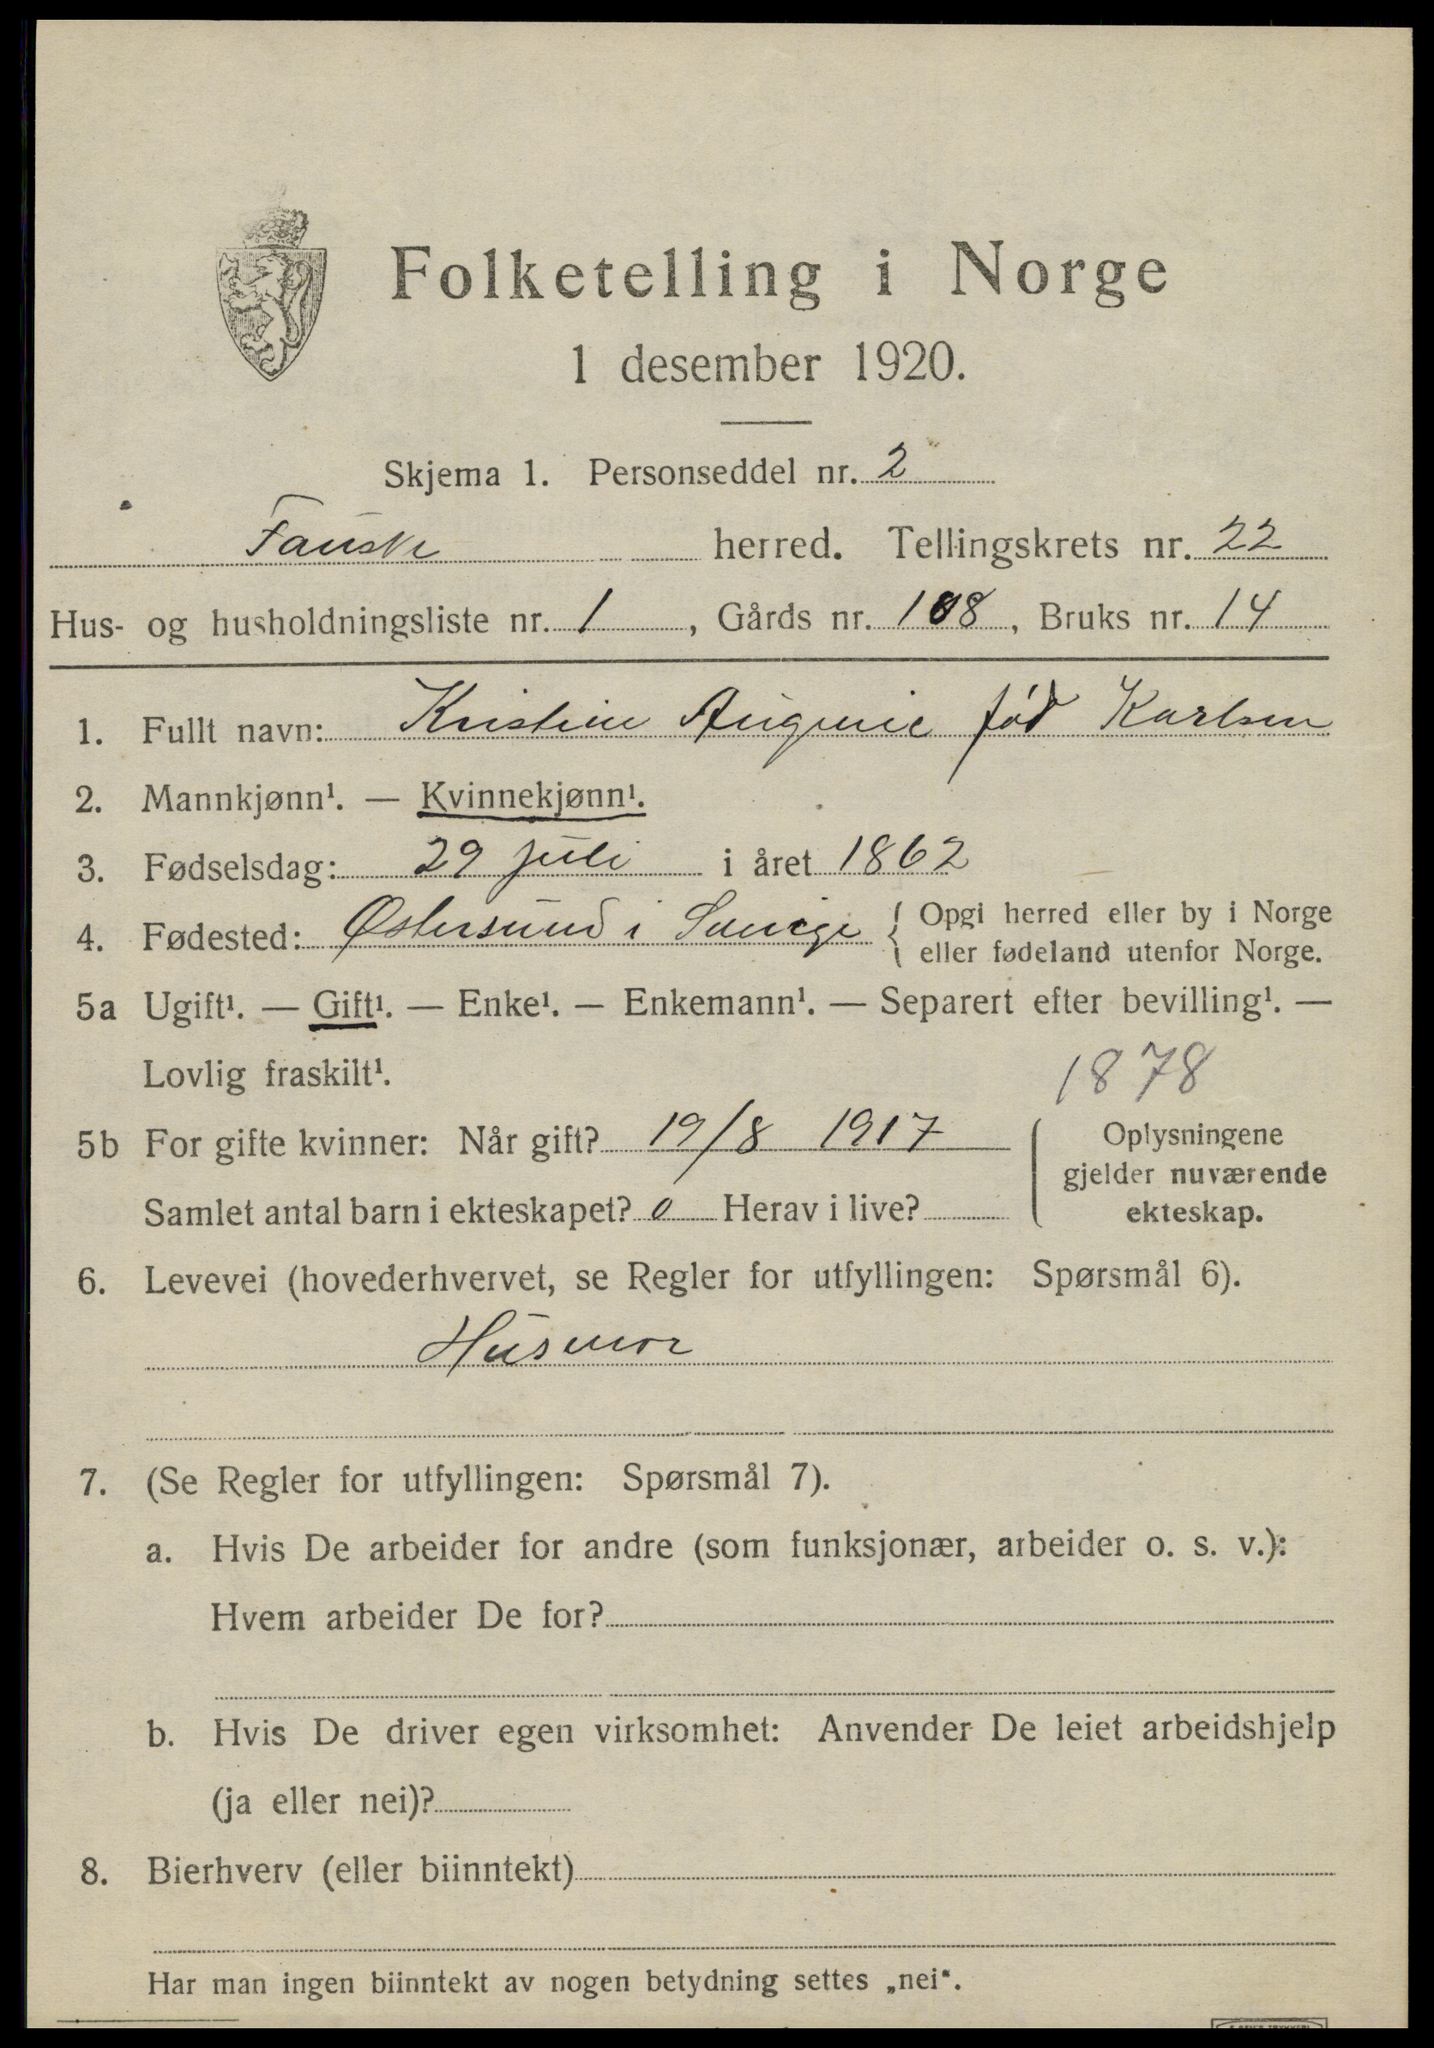 Folketelling i Norge
1 desember 1920.
Skjema 1. Personseddel nr. 2
Fauske herred. Tellingskrets nr. 22
Hus- og husholdningsliste nr. 1, Gårds nr. 108, Bruks nr. 14
1. Fullt navn: Kristine født Karlsen
2. Mannkjønn¹. — Kvinnekjønn¹.
3. Fødselsdag: 29 juli i året 1862
4. Fødested: Østersund i Sverige { Opgi herred eller by i Norge
eller fødeland utenfor Norge.
5a Ugift¹. — Gift¹. — Enke¹. — Enkemann¹. — Separert efter bevilling¹. —
Lovlig fraskilt¹.
1878
5b For gifte kvinner: Når gift? 19/8 1917
Samlet antal barn i ekteskapet? 0 Herav i live?
Oplysningene
gjelder nuværende
ekteskap.
6. Levevei (hovederhvervet, se Regler for utfyllingen: Spørsmål 6).
Husmor
7. (Se Regler for utfyllingen: Spørsmål 7).
a. Hvis De arbeider for andre (som funksjonær, arbeider o. s. v.):
Hvem arbeider De for?
b. Hvis De driver egen virksomhet: Anvender De leiet arbeidshjelp
(ja eller nei)?
8. Bierhverv (eller biinntekt)
Har man ingen biinntekt av nogen betydning settes „nei“.